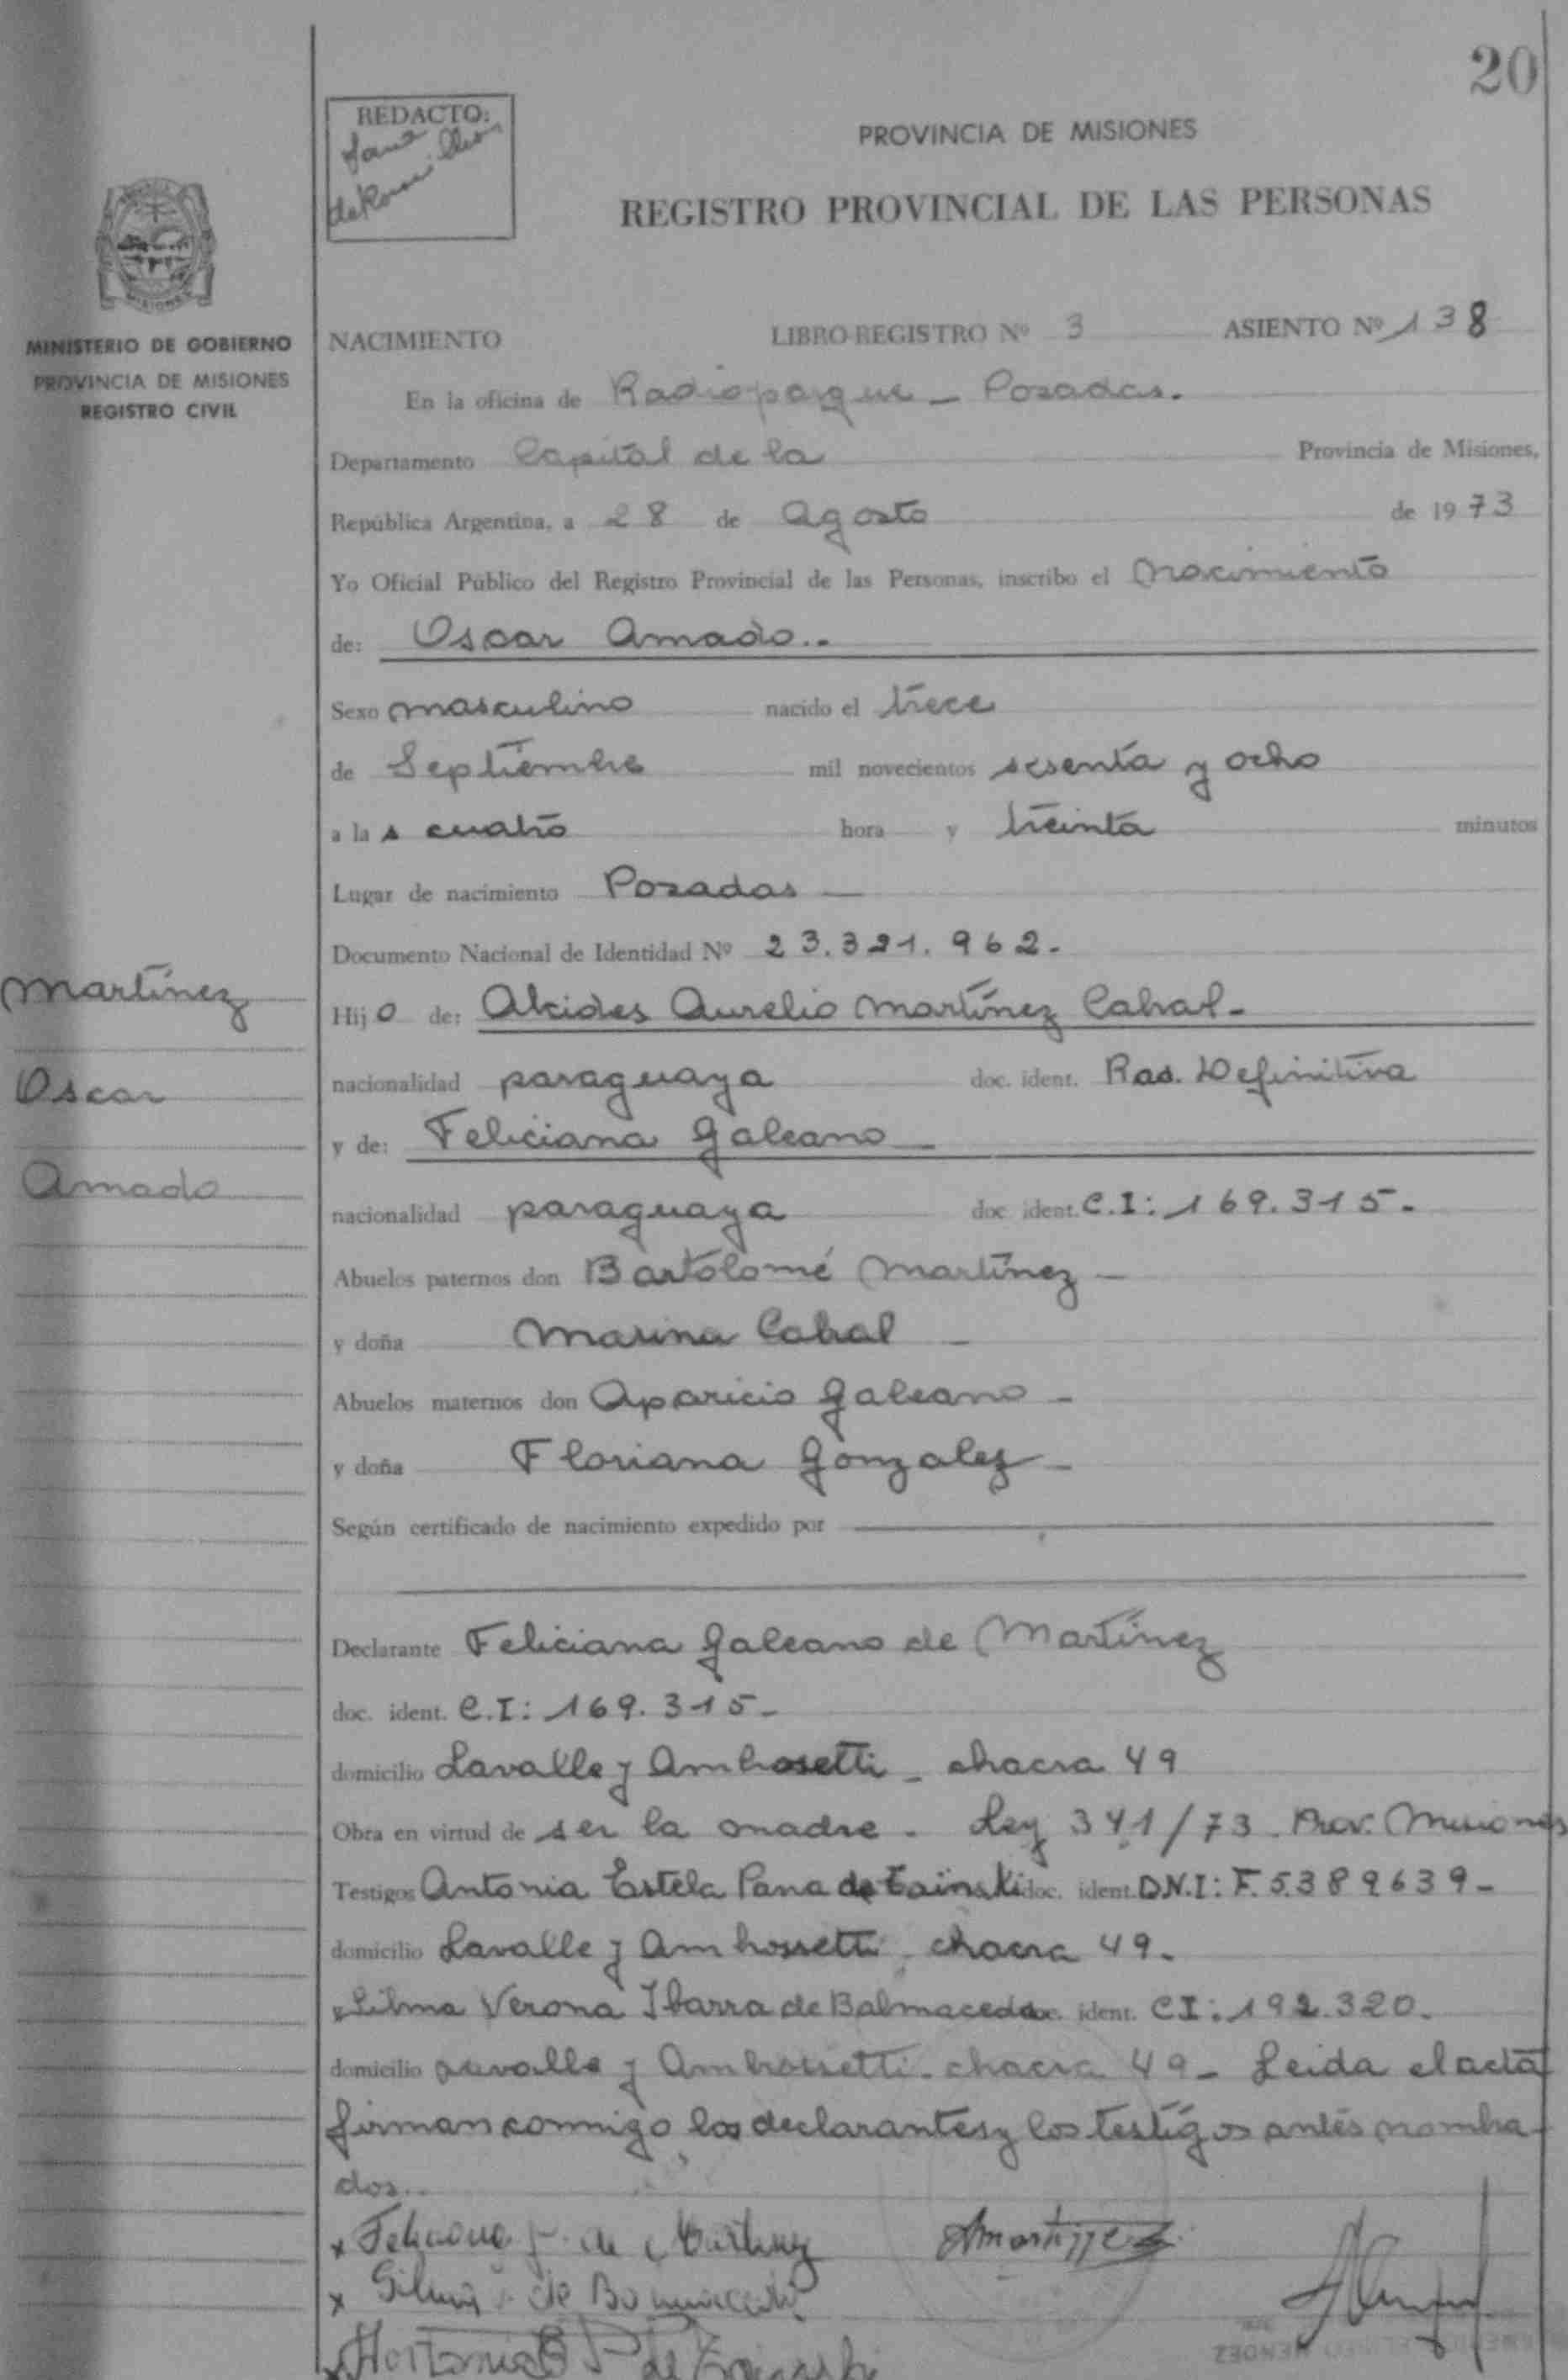 20
REDACTO:
PROVINCIA DE MISIONES
REGISTRO PROVINCIAL DE LAS PERSONAS
MISIONES
MINISTERIO DE GOBIERNO
PROVINCIA DE MISIONES
REGISTRO CIVIL
NACIMIENTO LIBRO-REGISTRO Nº 3 ASIENTO Nº 138
En la oficina de Radioparque - Posadas.
Departamento Capital de la Provincia de Misiones,
República Argentina, a 28 de Agosto de 1973
Yo Oficial Público del Registro Provincial de las Personas, inscribo el Nacimiento
de: Oscar Amado..
Sexo masculino nacido el trece
de Septiembre mil novecientos sesenta y ocho
a las cuatro hora y treinta minutos
Lugar de nacimiento Posadas -
Documento Nacional de Identidad Nº 23.321.962.-
Martínez
Hijo de: Alcides Aurelio Martínez Cabral-
Oscar
nacionalidad paraguaya doc. ident. Rad. Definitiva
y de: Feliciana Galeano -
Amado
nacionalidad paraguaya doc. ident. C.I: 169.315-
Abuelos paternos don Bartolomé Martínez -
y doña Marina Cabral -
Abuelos maternos don Aparicio Galeano -
y doña Floriana Gonzalez -
Según certificado de nacimiento expedido por
Declarante Feliciana Galeano de Martínez
doc. ident. C.I: 169.315-
domicilio Lavalle y Ambrosetti - chacra 49
Obra en virtud de ser la madre - Ley 341/73 - Prov. Misiones
Testigos Antonia Estela Pana de doc. ident. D.N.I: F.5.389639-
domicilio Lavalle y Ambrossetti - chacra 49-
y Silma Verona Ibarra de Balmaceda doc. ident. CI: 192.320.
domicilio Lavalle y Ambrossetti - chacra 49 - Leida el acta
firman conmigo los declarantes y los testigos antes nombra-
dos..
x Feliciana G. de Martinez AMartinez
x Silma de
x de
MENDEZ